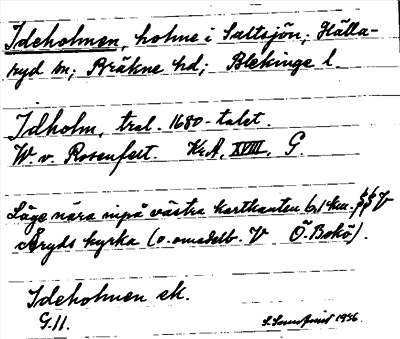 Ideholmen, holme i Saltsjön; Hälla-
ryd sn; Bräkne hd; Blekinge l.
Idholm, tral. 1680-talet.
W. v. Rosenfelt. Kr.A, XVIII, G.
Läge nära inpå västra kartkanten 6,1 km. V
Åryds kyrka (o. omedelb. V Ö. Bokö).
Ideholmen ek.
G.11. 1956.